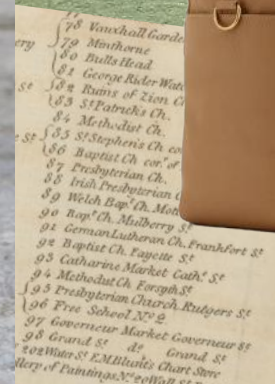 78 Vauxhall Garde
79 Minthorne
80 Bulls Head
81 George Rider Wate
St 82 Ruins of Zion C
83 St Patrick's Ch.
84 Methodist Ch.
St 85 St Stephen's Ch co
86 Baptist Ch cor. of
87 Presbyterian Ch.
88 Irish Presbyterian C
89 Welch Bapt. Ch. Mott
90 Bapt. Ch. Mulberry St
91 German Lutheran Ch. Frankfort St
92 Baptist Ch. Fayette St
93 Catharine Market Cath.e St
94 Methodist Ch Forsyth St
95 Presbyterian Church Rutgers St
96 Free School No 2
97 Governeur Market Governeur St
98 Grand St do Grand St
202 Water St E.M. Blunt's Chart Store
llery of Paintings No 20 Wall St